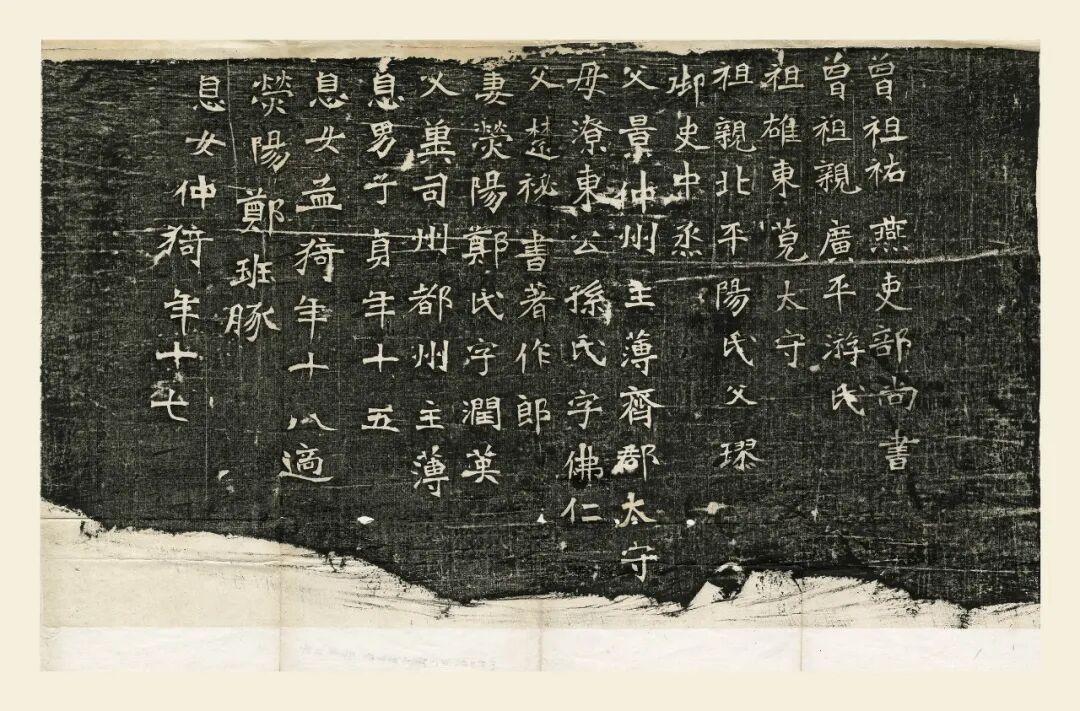 曾祖祐燕吏部尚書
曾祖親廣平游氏
祖雄東莞太守
祖親北平陽氏父璆
御史中丞
父景仲州主薄齊郡太守
母遼東公孫氏字佛仁
父楚祕書著作郎
妻滎陽鄭氏字潤英
父冀司州都州主薄
息男子貞年十五
息女孟猗年十八適
滎陽鄭班豚
息女仲猗年十七